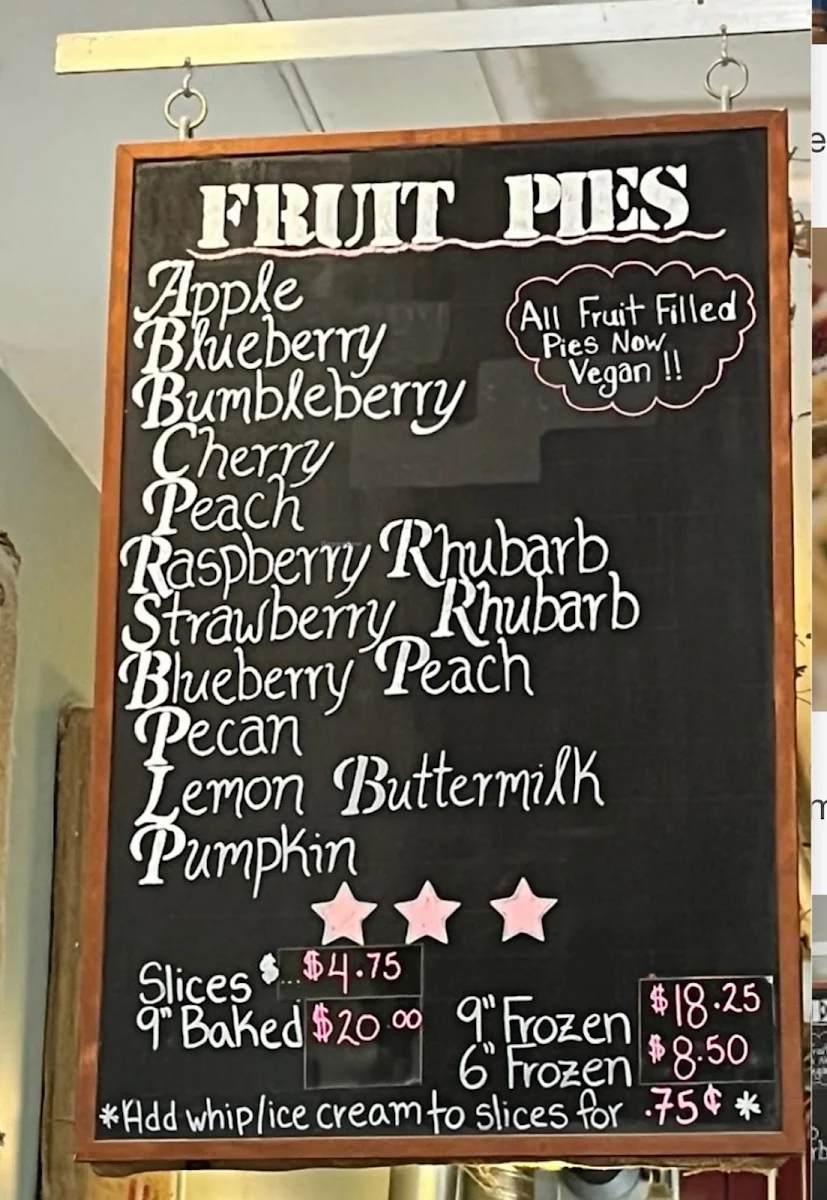 FRUIT PIES
All Fruit Filled
Pies Now
Vegan !!
Apple
Blueberry
Bumbleberry
Cherry
Peach
Raspberry Rhubarb
Strawberry Rhubarb
Blueberry Peach
Pecan
Lemon Buttermilk
Pumpkin
Slices $...$4.75
9" Baked $20.00
9" Frozen $18.25
6" Frozen $8.50
*Add whip/ice cream to slices for .75¢ *